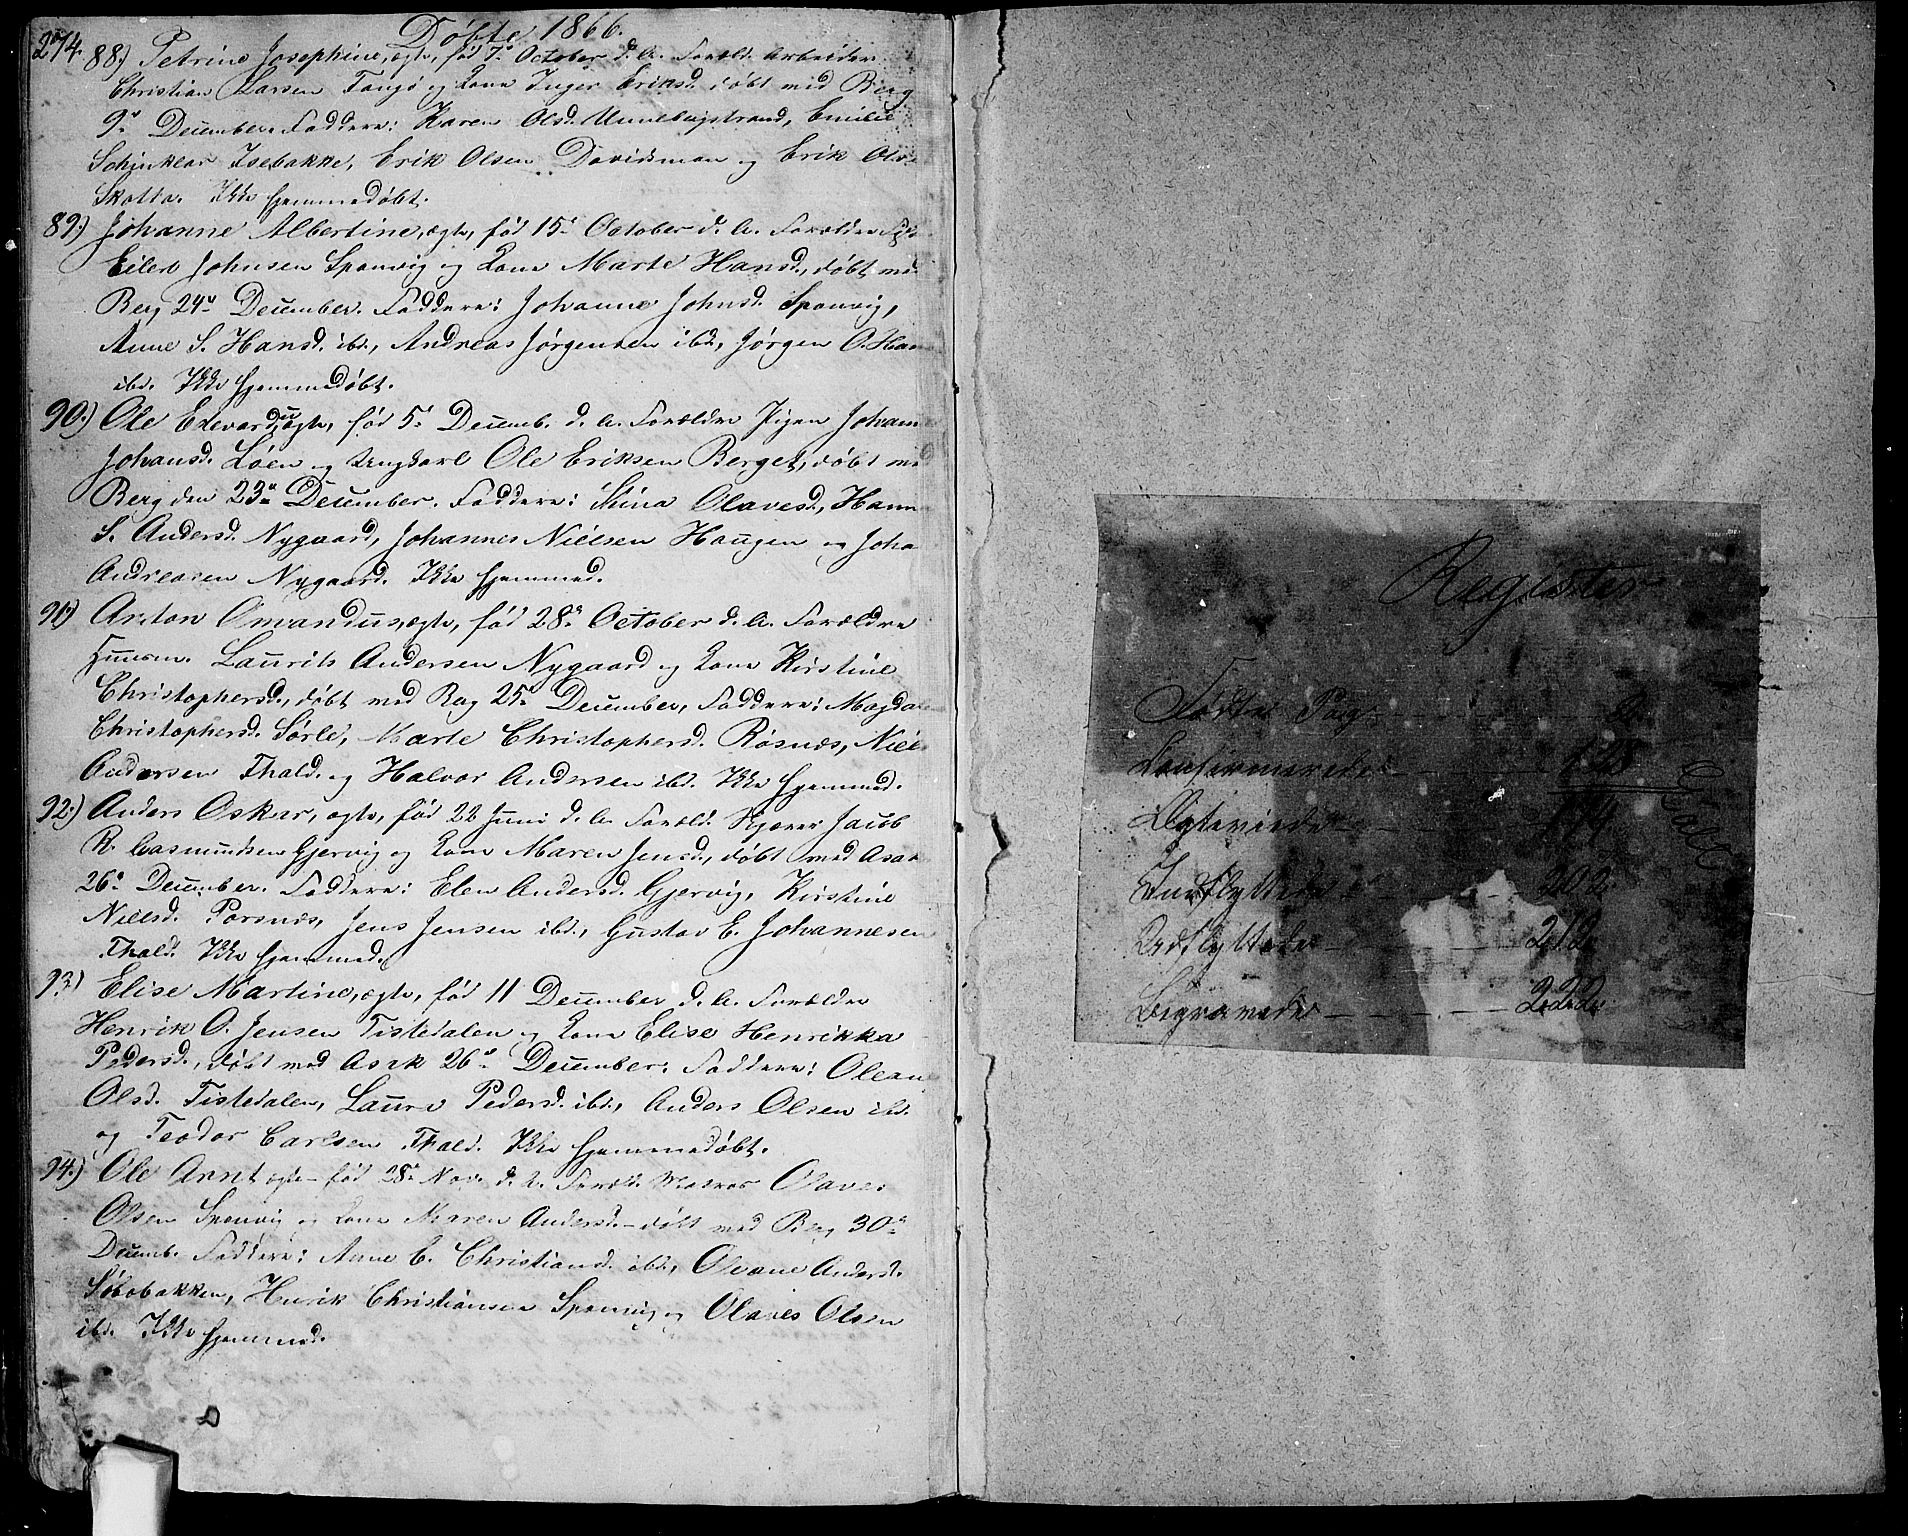 274.
Døbte 1866.
88.) Petrine Josephine, ægte, fød 7de October d. A. Foræld. Arbeider
Christian Larsen Tangø og Kone Inger Eriksd. døbt med Berg
9de December. Faddere: Karen Olsd. Unnebergstrand, Emilie
Schinkler Isebakke, Erik Olsen Davidsmon og Erik Ols
Skotta. Ikke hjemmedøbt.
89.) Johanne Albertine, ægte, fød 15de October d. A. Forældre
Eilert Johnsen Sponvig og Kone Marte Hansd., døbt med
Berg 24de December. Faddere: Johanne Johnsd. Sponvig,
Anne S. Hansd. ibd., Andreas Jørgensen ibd., Jørgen O. Han
ibd. Ikke hjemmedøbt.
90.) Ole Edevard, uægte, fød 5te Decemb. d. A. Forældre Pigen Johan
Johansd. Løen og Ungkarl Ole Eriksen Berget, døbt med
Berg den 23de December. Faddere: Stina Olavesd., Hann
S. Andersd. Nygaard, Johannes Nielsen Haugen og Joha
Andreasen Nygaard. Ikke hjemmed.
91.) Anton Omandus, ægte, fød 28de October d. A. Forældre
Huusm. Laurits Andersen Nygaard og Kone Kirstine
Christophersd., døbt med Rag 25de December, Faddere: Magda
Christophersd. Sørle, Marte Christophersd. Røsnæs, Niel
Andersen Fhald. og Halvor Andersen ibd. Ikke hjemmed.
92.) Anders Oskar, ægte, fød 22 Juni d. A. Foræld. Skjærer Jacob
R. Casmundsen Gjervig og Kone Maren Jensd., døbt med Asak
26de December. Faddere: Elen Andersd. Gjervig, Kirstine
Nielsd. Porsnæs, Jens Jensen ibd., Gustav E. Johannesen
Fhald. Ikke hjemmed.
93.) Elise Martine, ægte, fød 11 December d. A. Forældre
Henrik O. Jensen Tistedalen og Kone Elise Henrikka
Pedersd., døbt med Asak 26de December. Faddere: Olean
Olsd. Tistedalen, Laura Pedersd. ibd., Anders Olsen ibd.
og Teodor Carlsen Fhald. Ikke hjemmedøbt.
94.) Ole Arnt ægte fød 28de Nov. d. A. Foræld. Matros Olaves
Olsen Sponvig og Kone Maren Andersd. døbt med Berg 30de
Decemb. Faddere: Anne C. Christiansd. ibd., Oleane Andersd.
Søbobakken, Henrik Christiansen Sponvig og Olaves Olsen
ibd. Ikke hjemmed.
Register
Fødte Pag. 8.
Confirmerede 128
Ægteviede 174
Indflyttede 202
Udflyttede 212
Begravede 222